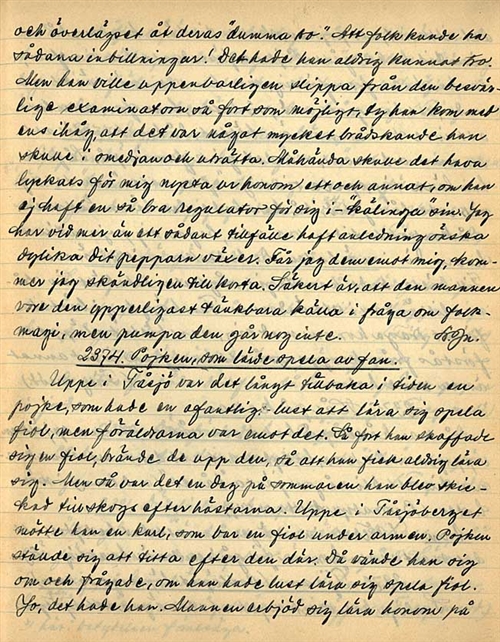 och överlägset åt deras "dumma tro". Att folk kunde ha
sådana inbillningar! Det hade han aldrig kunnat tro.
Men han ville uppenbarligen slippa från den besvär-
lige examinatorn så fort som möjligt, ty han kom med
ens ihåg att det var något mycket brådskande han
skulle i smedjan och uträtta. Måhända skulle det hava
lyckats för mig nysta ur honom ett och annat, om han
ej haft en så bra regulator för sig i "källinga" sin. Jag
har vid mer än ett sådant tillfälle haft anledning önska
dylika dit pepparn växer. Får jag dem emot mig, kom-
mer jag skändligen till korta. Säkert är, att den mannen
vore den ypperligast tänkbara källa i fråga om folk-
magi, men pumpa den går nog inte.
2374. Pojken, som lärde spela av fan.
Uppe i Tåsjö var det långt tillbaka i tiden en
pojke, som hade en ofantlig lust att lära sig spela
fiol, men föräldrarna var emot det. Så fort han skaffade
sig en fiol, brände de upp den, så att han fick aldrig lära
sig. Men så var det en dag på sommaren han blev skic-
kad till skogs efter hästarna. Uppe i Tåsjöberget
mötte han en karl, som bar en fiol under armen. Pojken
ställde sig att titta efter den där. Då vände han sig
om och frågade, om han hade lust lära sig spela fiol.
Jo, det hade han. Mannen erbjöd sig lära honom på